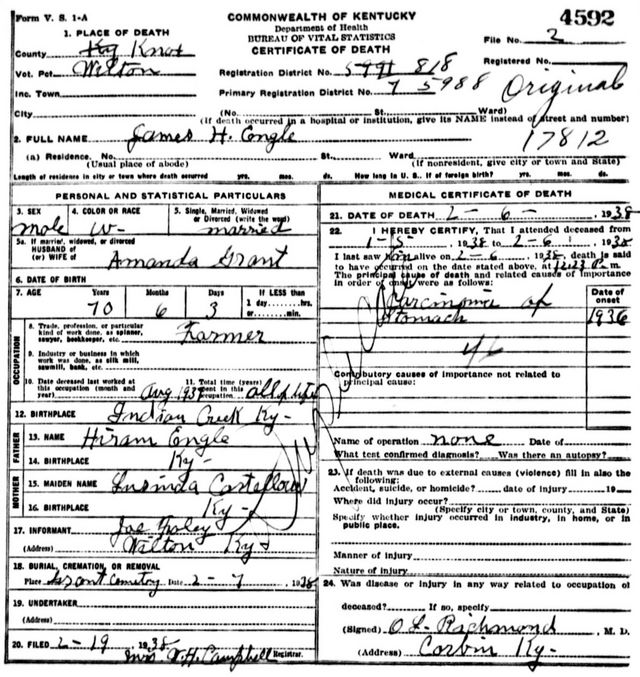 Form V. S. 1-A
COMMONWEALTH OF KENTUCKY
4592
Department of Health
BUREAU OF VITAL STATISTICS
CERTIFICATE OF DEATH
File No. 2
1. PLACE OF DEATH
County Knox
Registered No.
Vot. Pct. Wilton
Registration District No. 818
Inc. Town
Primary Registration District No. 5988
Original
City (No. St. Ward)
(If death occurred in a hospital or institution, give its NAME instead of street and number)
2. FULL NAME James H. Engle
17812
(a) Residence. No. St. Ward
(Usual place of abode) (If nonresident, give city or town and State)
Length of residence in city or town where death occurred yrs. mos. ds. How long in U. S., if of foreign birth? yrs. mos. ds.
PERSONAL AND STATISTICAL PARTICULARS
3. SEX male
4. COLOR OR RACE W-
5. Single, Married, Widowed or Divorced (write the word) married
5a. If married, widowed, or divorced
HUSBAND of
(or) WIFE of Amanda Grant
6. DATE OF BIRTH
7. AGE Years 70 Months 6 Days 3 If LESS than 1 day....hrs. or....min.
OCCUPATION
8. Trade, profession, or particular kind of work done, as spinner, sawyer, bookkeeper, etc. Farmer
9. Industry or business in which work was done, as silk mill, sawmill, bank, etc.
10. Date deceased last worked at this occupation (month and year) Aug 193
11. Total time (years) spent in this occupation all of life
12. BIRTHPLACE Indian Creek Ky-
FATHER
13. NAME Hiram Engle
14. BIRTHPLACE Ky-
MOTHER
15. MAIDEN NAME Lusinda
16. BIRTHPLACE Ky-
17. INFORMANT Joe
(Address) Wilton Ky-
18. BURIAL, CREMATION, OR REMOVAL
Place Grant Cemetry Date 2-7 1938
19. UNDERTAKER
(Address)
20. FILED 2-19 1938 Mrs W.H. Campbell Registrar.
MEDICAL CERTIFICATE OF DEATH
21. DATE OF DEATH 2-6- , 1938
22. I HEREBY CERTIFY, That I attended deceased from
1-5 , 1938 to 2-6 , 1938
I last saw him alive on 2-6 , 1938, death is said
to have occurred on the date stated above, at m.
The principal cause of death and related causes of importance
in order of onset were as follows:
Date of onset
Carcinoma of
Stomach 1936
46
Contributory causes of importance not related to
principal cause:
Name of operation none Date of
What test confirmed diagnosis? Was there an autopsy?
23. If death was due to external causes (violence) fill in also the
following:
Accident, suicide, or homicide? date of injury 19
Where did injury occur?
(Specify city or town, county, and State)
Specify whether injury occurred in industry, in home, or in
public place.
Manner of injury
Nature of injury
24. Was disease or injury in any way related to occupation of
deceased? If no, specify
(Signed) O.L. Richmond , M. D.
(Address) Corbin Ky-
Duplicate